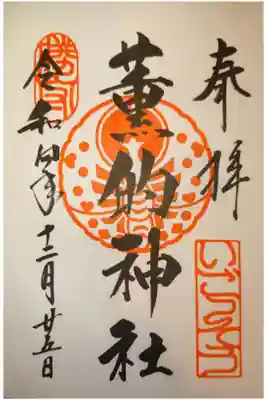 奉拝
いごっそう
薫的神社
令和四年十二月廿五日